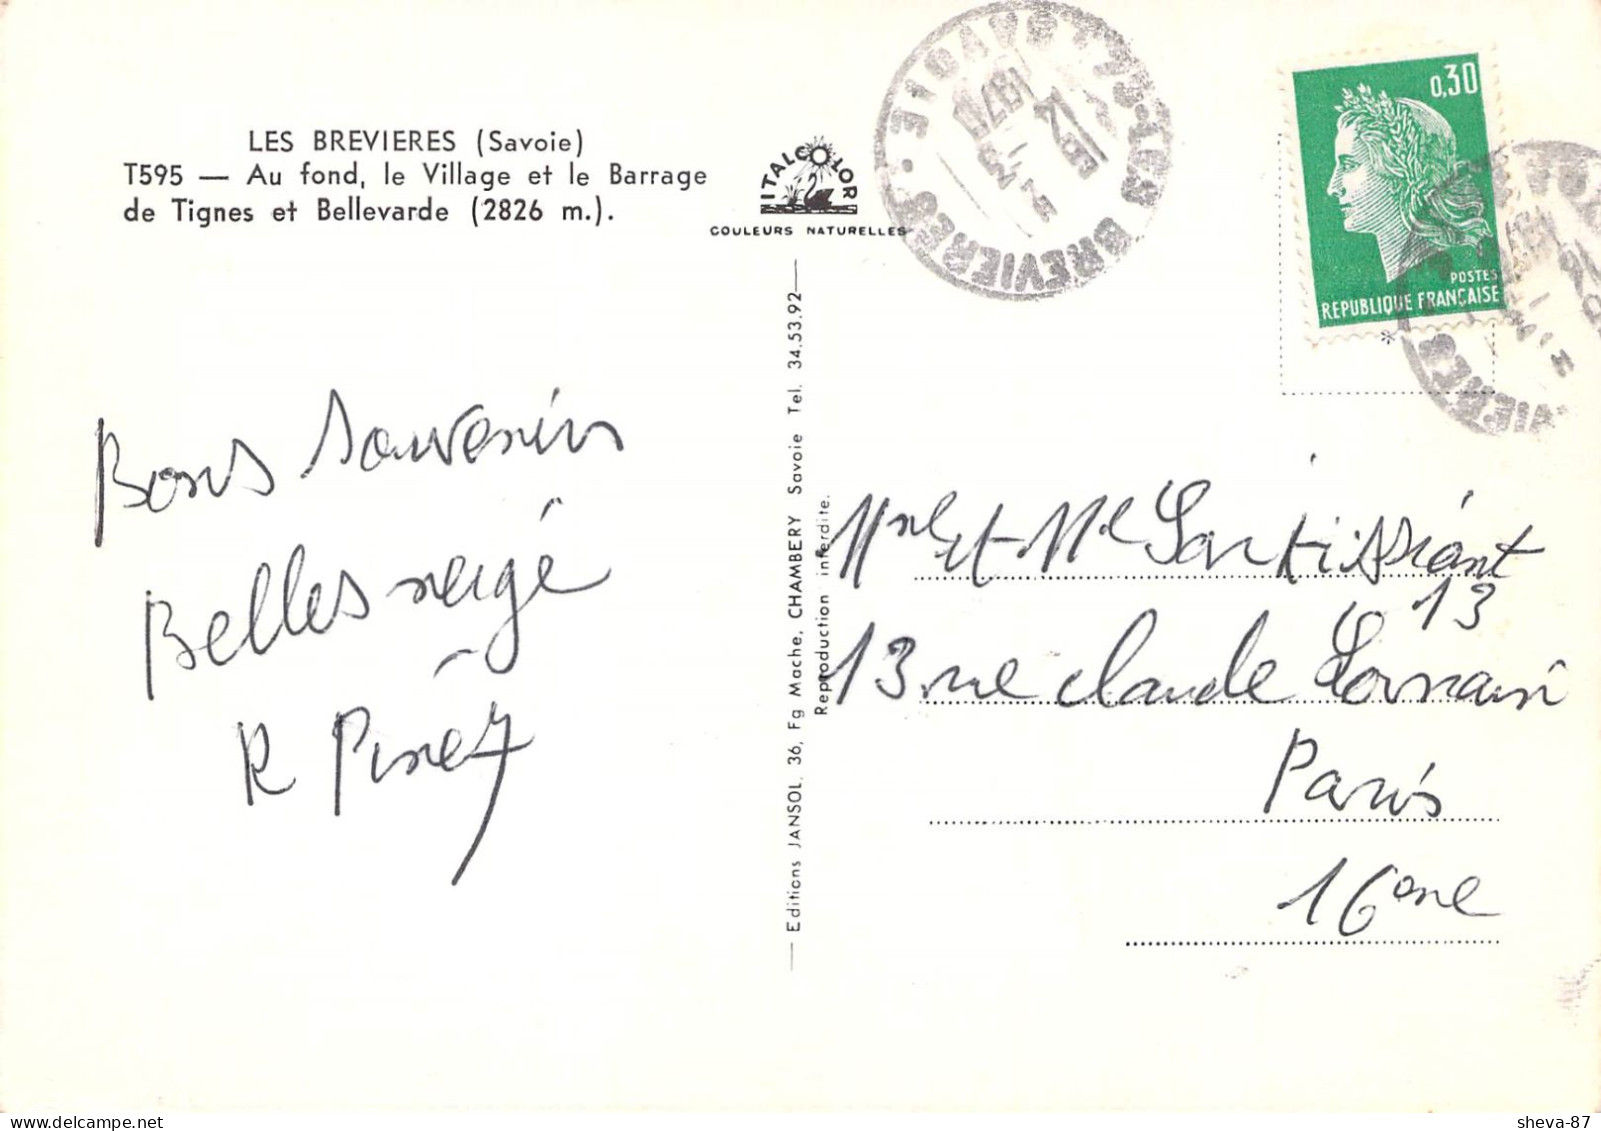 LES BREVIERES (Savoie)
T595 — Au fond, le Village et le Barrage
de Tignes et Bellevarde (2826 m.).
ITALCOLOR
COULEURS NATURELLES
73 LES BREVIERES SAVOIE
0,30
POSTES
REPUBLIQUE FRANÇAISE
*
Bons souvenirs
Belles neige
R Pinez
Editions JANSOL, 36, Fg Mache, CHAMBERY Savoie Tel. 34.53.92
Reproduction interdite.
Mme et Mr
13
13 rue Claude Lorrain
Paris
16eme
sheva-87